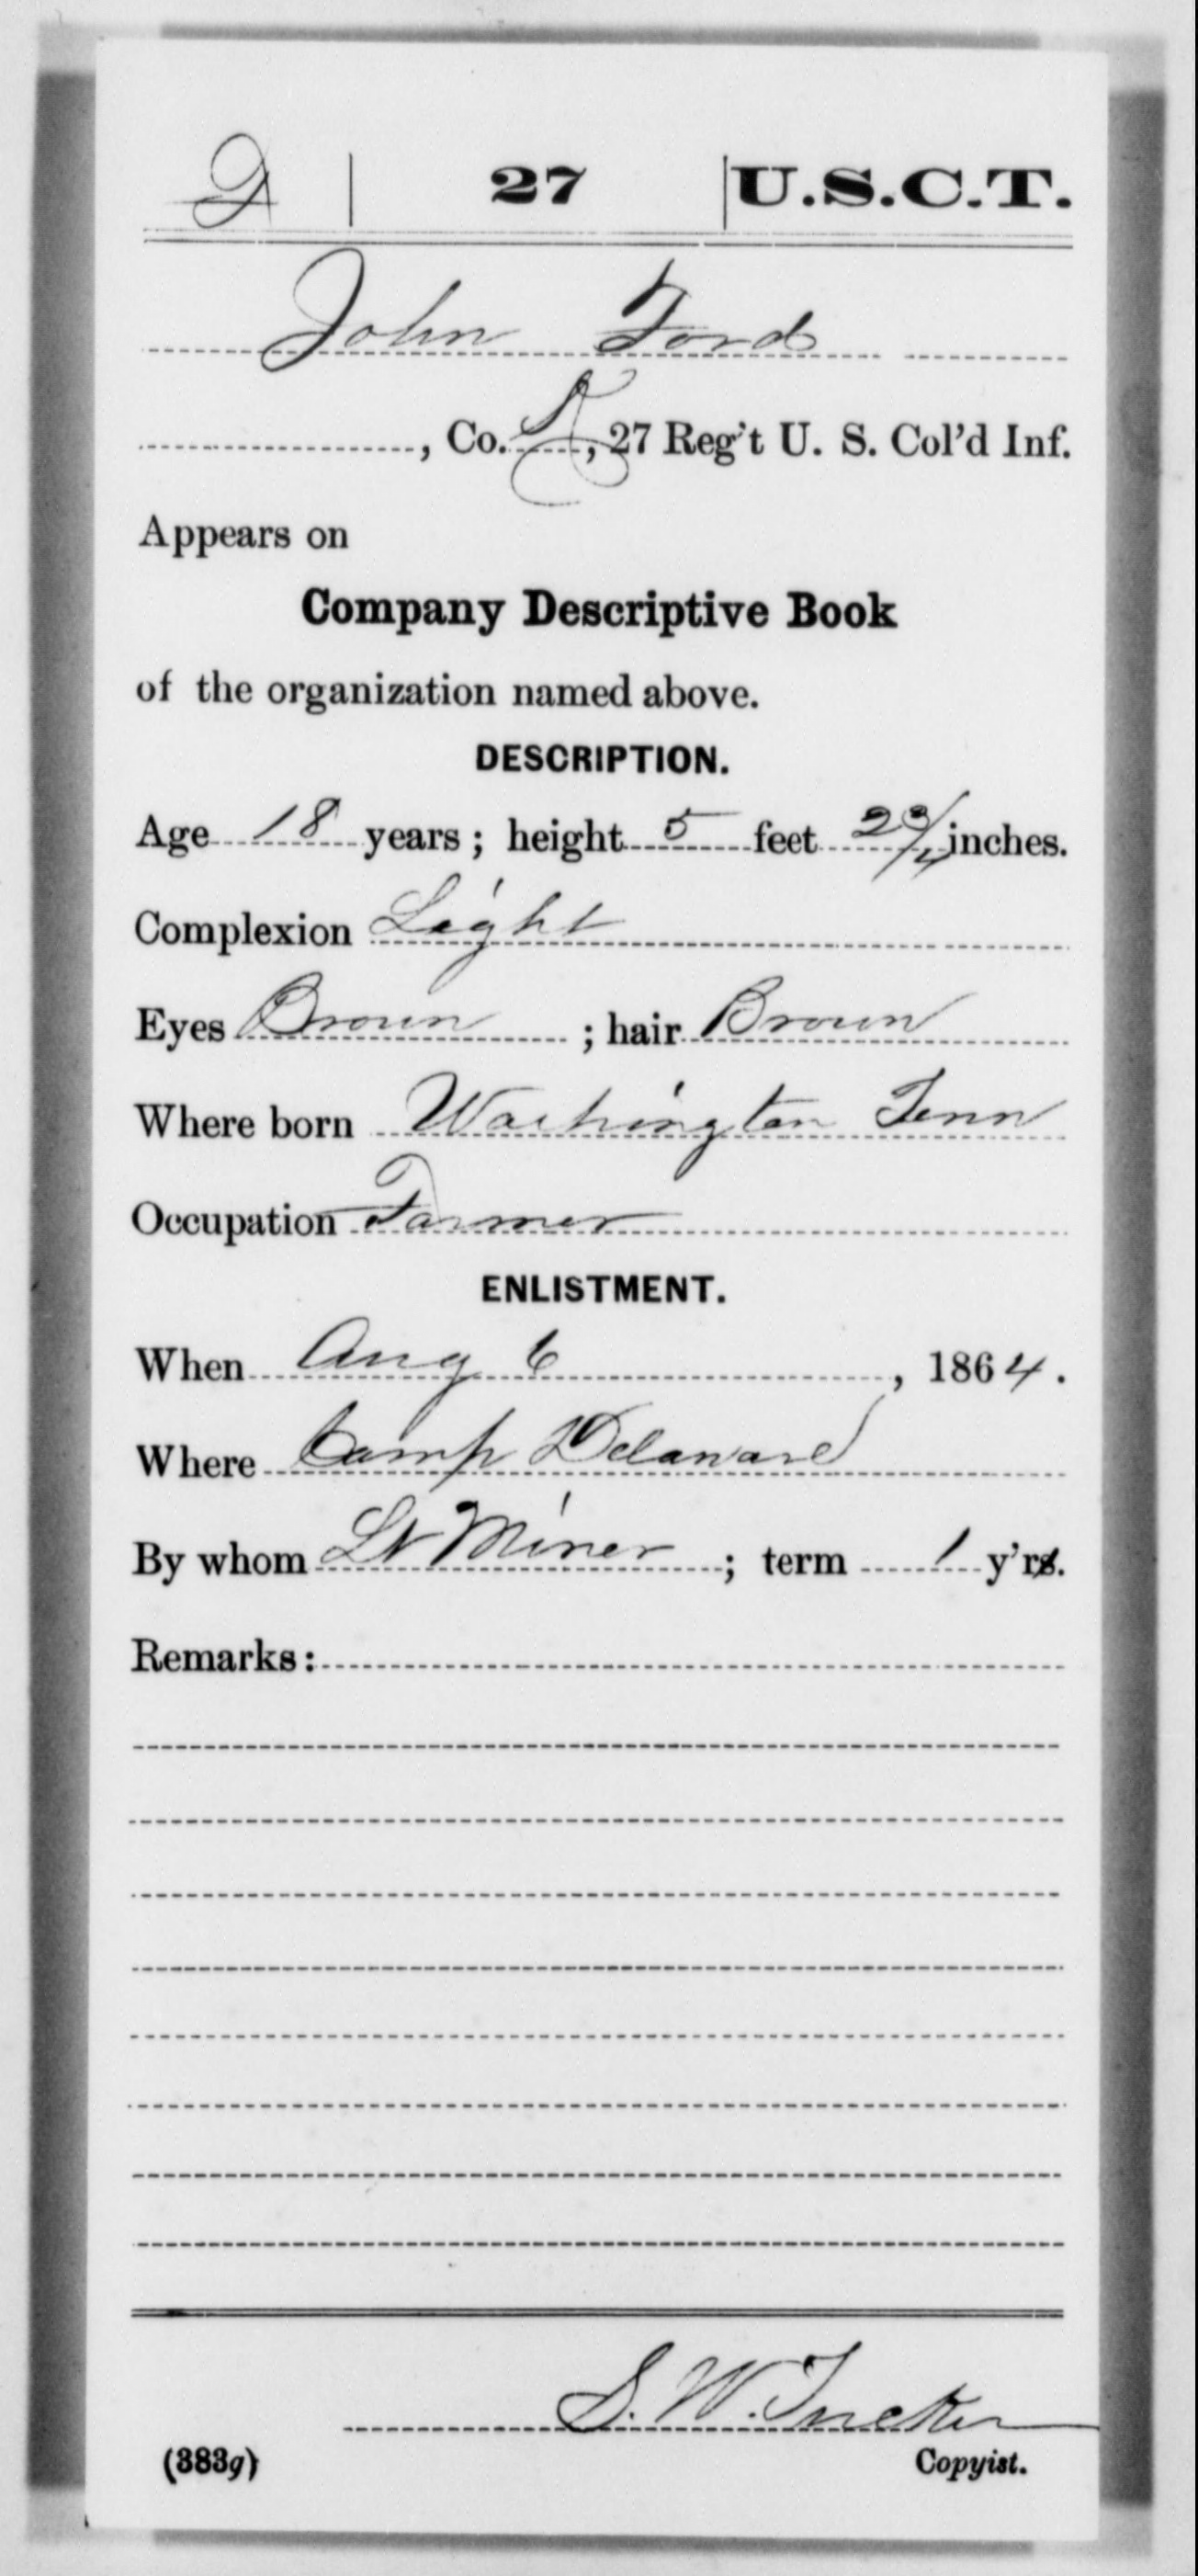 F | 27 | U.S.C.T.
John Ford
, Co. K, 27 Reg't U. S. Col'd Inf.
Appears on
Company Descriptive Book
of the organization named above.
DESCRIPTION.
Age 18 years; height 5 feet 2 3/4 inches.
Complexion Light
Eyes Brown ; hair Brown
Where born Washington Tenn
Occupation Farmer
ENLISTMENT.
When Aug 6, 1864.
Where Camp Delaware
By whom Lt Miner ; term 1 y'rs.
Remarks:
S. W. Tucker
(383g) Copyist.